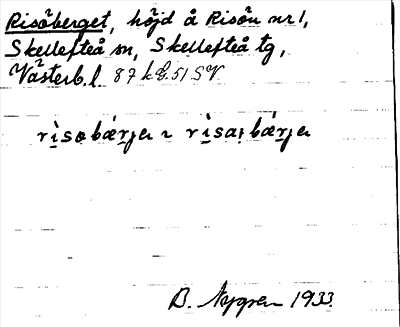 Risöberget, höjd å Risön nr 1,
Skellefteå sn, Skellefteå tg,
Västerb. l. 87 k G. 51 SV
rìsobárjer ~ rìsaı bárjer
B. Nygren 1933.